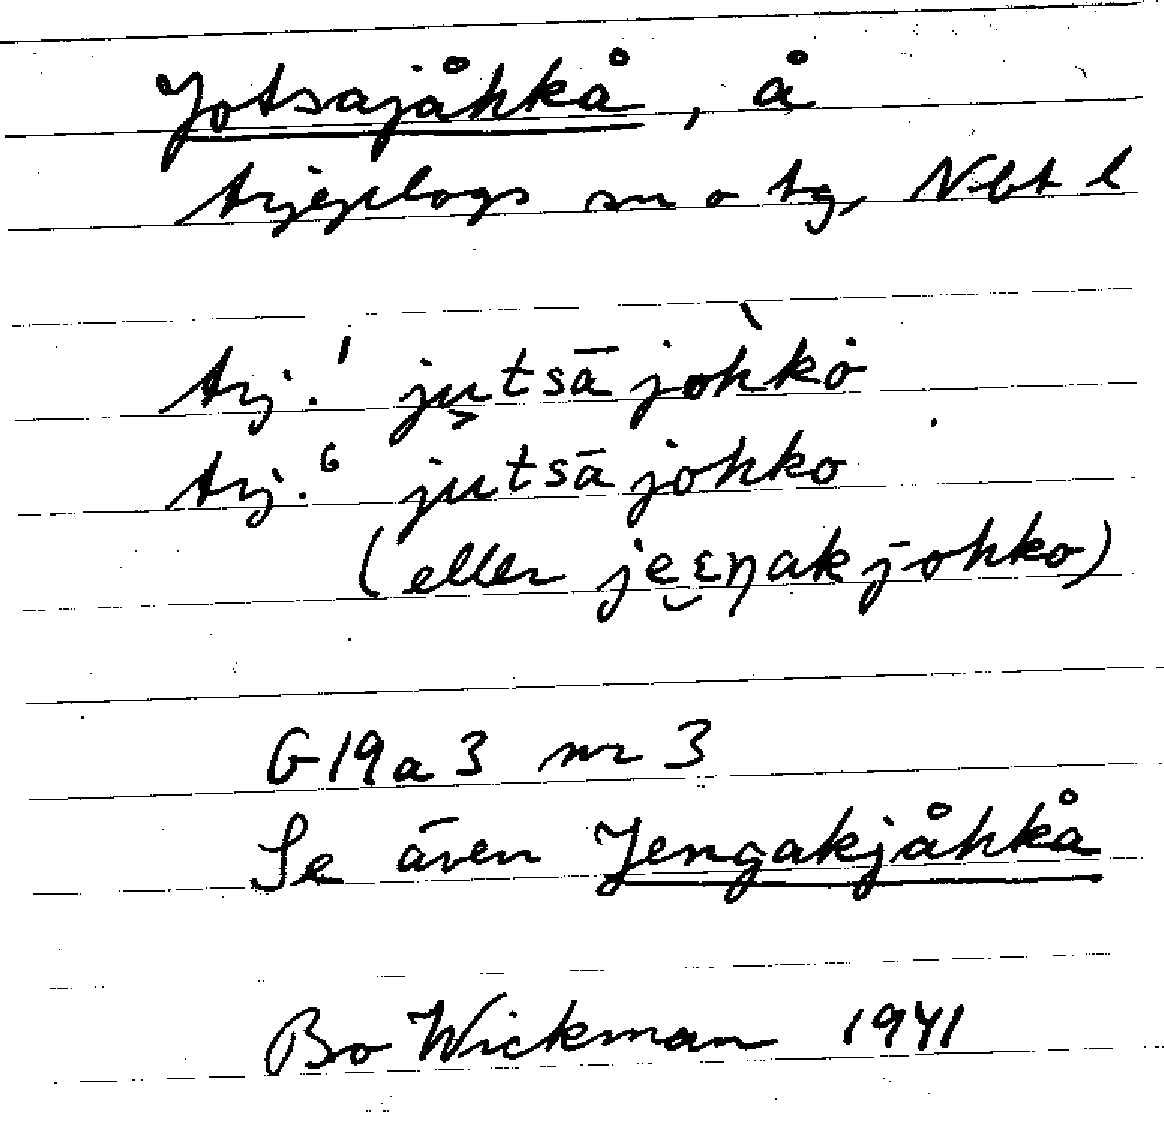 Jotsajåhkå, å
Arjeplogs sn o tg, Nbt l
Arj.¹ ju̬tsā johkȯ̀
Arj.⁶ jutsā johko
(eller jee̮ɛŋak johko)
G19a3 nr 3
Se även Jengakjåhkå
Bo Wickman 1941